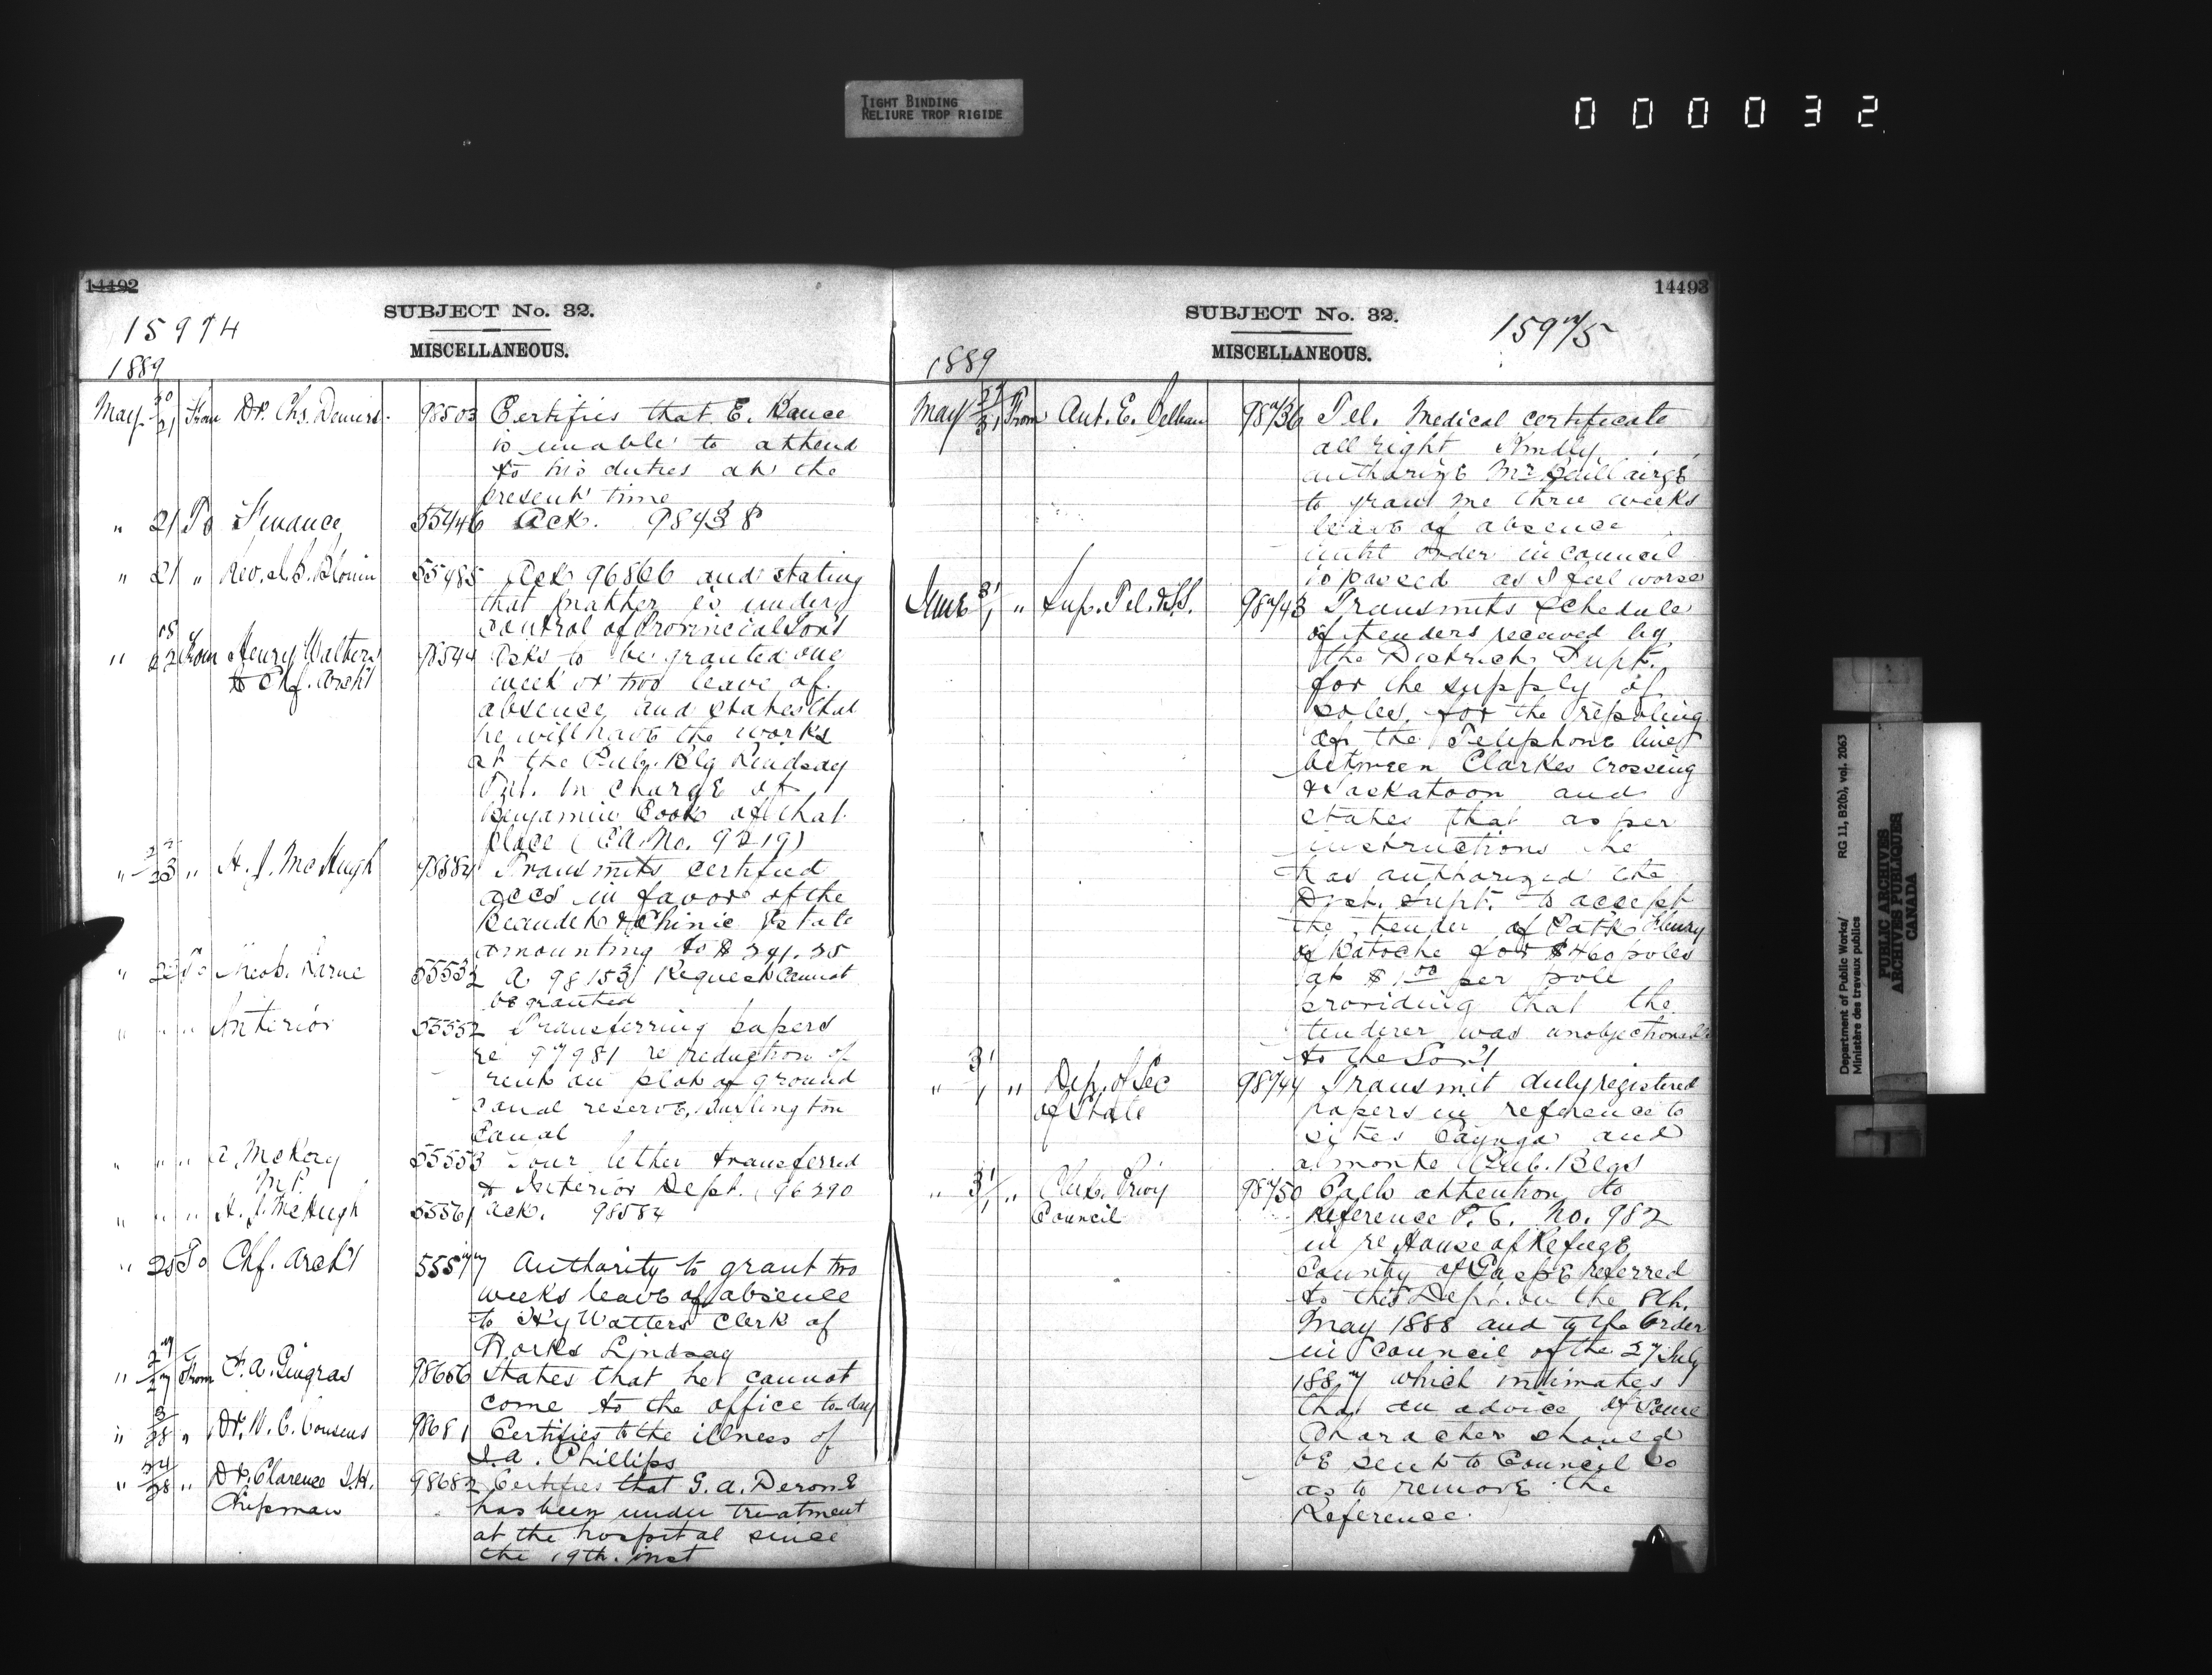 TIGHT BINDING
RELIURE TROP RIGIDE
000032
14492
SUBJECT No. 32.
15974
MISCELLANEOUS.
1889
May 20/21 From Dr. Chs. 98503 Certifies that E. Rance
is unable to attend
to his duties at the
present time
" 21 To Finance 55446 Ack. 98438
" 21 " Rev. J. B. Blouin 55485 Ack 96866 and stating
that matter is under
control of Provincial Gov't
" 18/22 From Henry Walters 98544 Asks to be granted one
to Chf. Arch't week or two leave of
absence and states that
he will have the works
at the Pub. Blg Lindsay
Put. in charge of
Benjamin Cook of that
place (EA. No. 9219)
" 22/23 " H. J. McHugh 98584 Transmits certified
accs in favor of the
Beaudet & Chinic Estate
amounting to $241.35
" 23 To Larue 55532 A. 98153 Request cannot
be granted
" " " Interior 55552 Transferring papers
re 97981 re reduction of
rent on plot of ground
Canal reserve, Burlington
Canal
" " " A. McKay 55553 Your letter transferred
M.P. to Interior Dept. 96290
" " " H. J. McHugh 55561 Ack. 98584
" 25 To Chf. Arch't 55577 Authority to grant two
weeks leave of absence
to Hy Watters Clerk of
Works Lindsay
" 27/27 From F. A. Gingras 98656 States that he cannot
come to the office to-day
" 3/28 " Dr. W. C. Cousens 98681 Certifies to the illness of
J. A. Phillips
" 24/28 " Dr. Clarence J. H. 98682 Certifies that G. A. Derome
Chipman has been under treatment
at the hospital since
the 19th. inst
14493
SUBJECT No. 32.
15975
MISCELLANEOUS.
1889
May 31 From Aut. E. 98736 Tel. Medical certificate
all right Kindly
authorize Mr. Baillairgé
to grant me three weeks
leave of absence
until order in council
is passed as I feel worse
June 31/1 " Sup. Tel. & S.S. 98743 Transmits Schedule
of tenders received by
the District Supt.
for the supply of
poles, for the repoling
of the Telephone lines
between Clarkes Crossing
& Saskatoon and
states that as per
instructions he
has authorized the
Dist. Supt. to accept
the tender of Patk Fleury
of Batoche for 460 poles
at $1.50 per pole
providing that the
tenderer was unobjectionable
to the Gov't
" 31/1 " Dep. of Sec 98744 Transmit duly registered
of State papers in reference to
sites Cayuga and
Almonte Pub. Blgs
" 31/1 " Clerk. Privy 98750 Calls attention to
Council Reference P. C. No. 982
in re House of Refuge
County of Gaspé referred
to this Dept. on the 8th.
May 1888 and to the Order
in Council of the 27 July
1887 which intimates
that an advice of some
Character should
be sent to Council so
as to remove the
Reference.
Department of Public Works/ RG 11, B2(b), vol. 2063
Ministère des travaux publics
PUBLIC ARCHIVES
ARCHIVES PUBLIQUES
CANADA